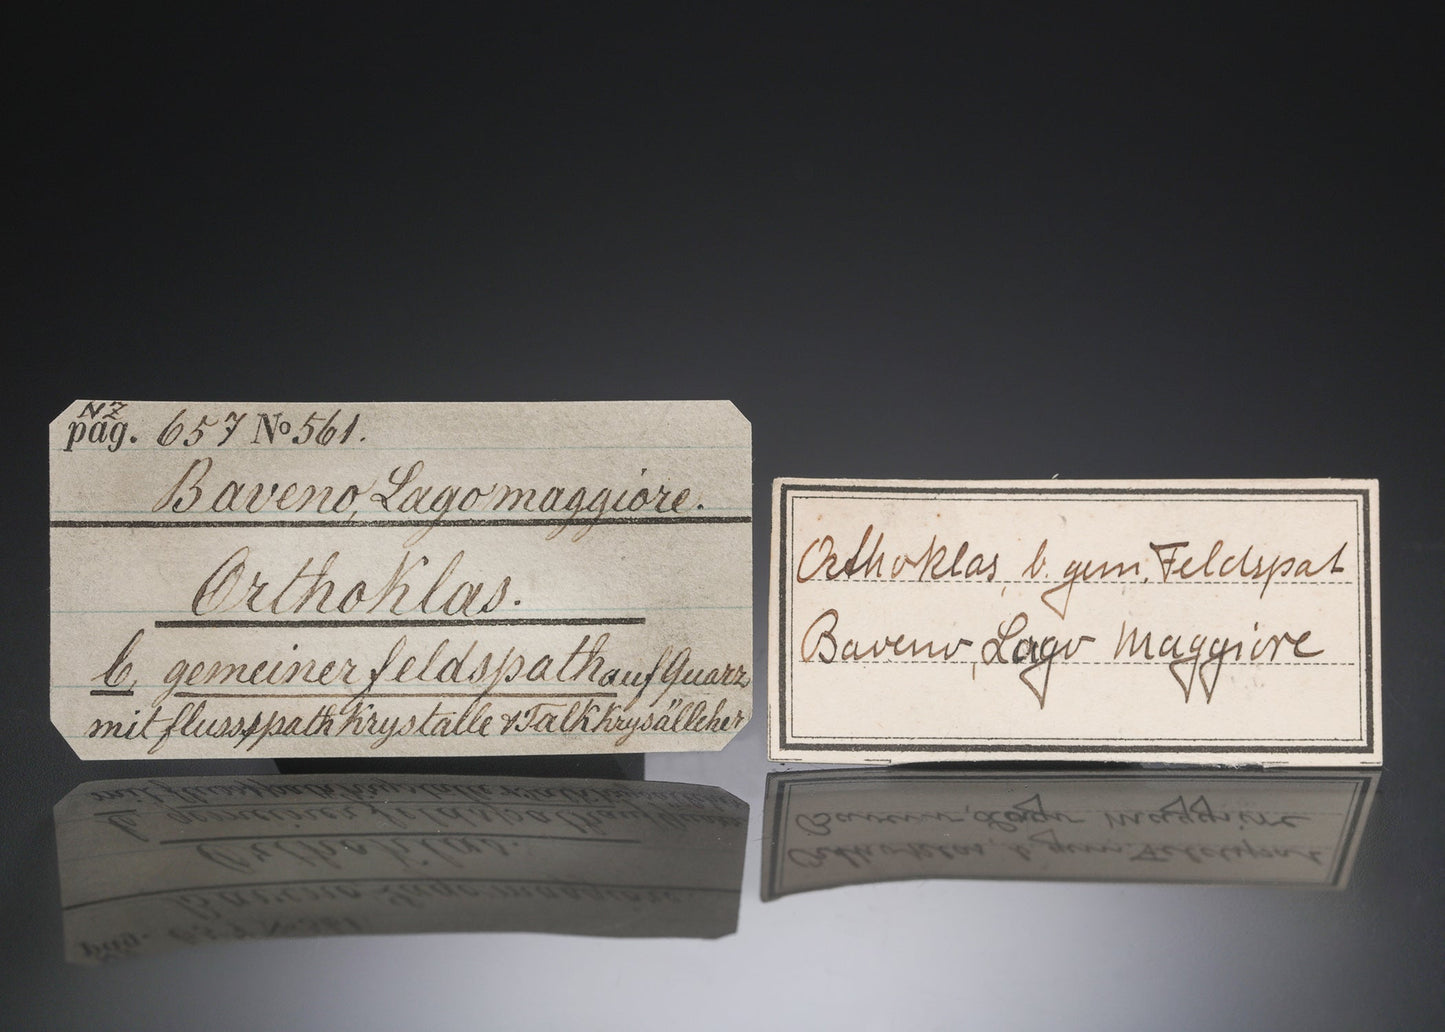 NZ
pag. 657 No 561.
Baveno, Lago maggiore.
Orthoklas.
b, gemeiner feldspath auf Quarz
mit flussspath Krystalle & Talkkrysällcher
Orthoklas, b. gem. Feldspat
Baveno, Lago Maggiore